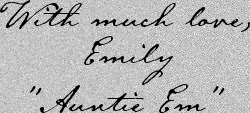 With much love,
Emily
"Auntie Em"